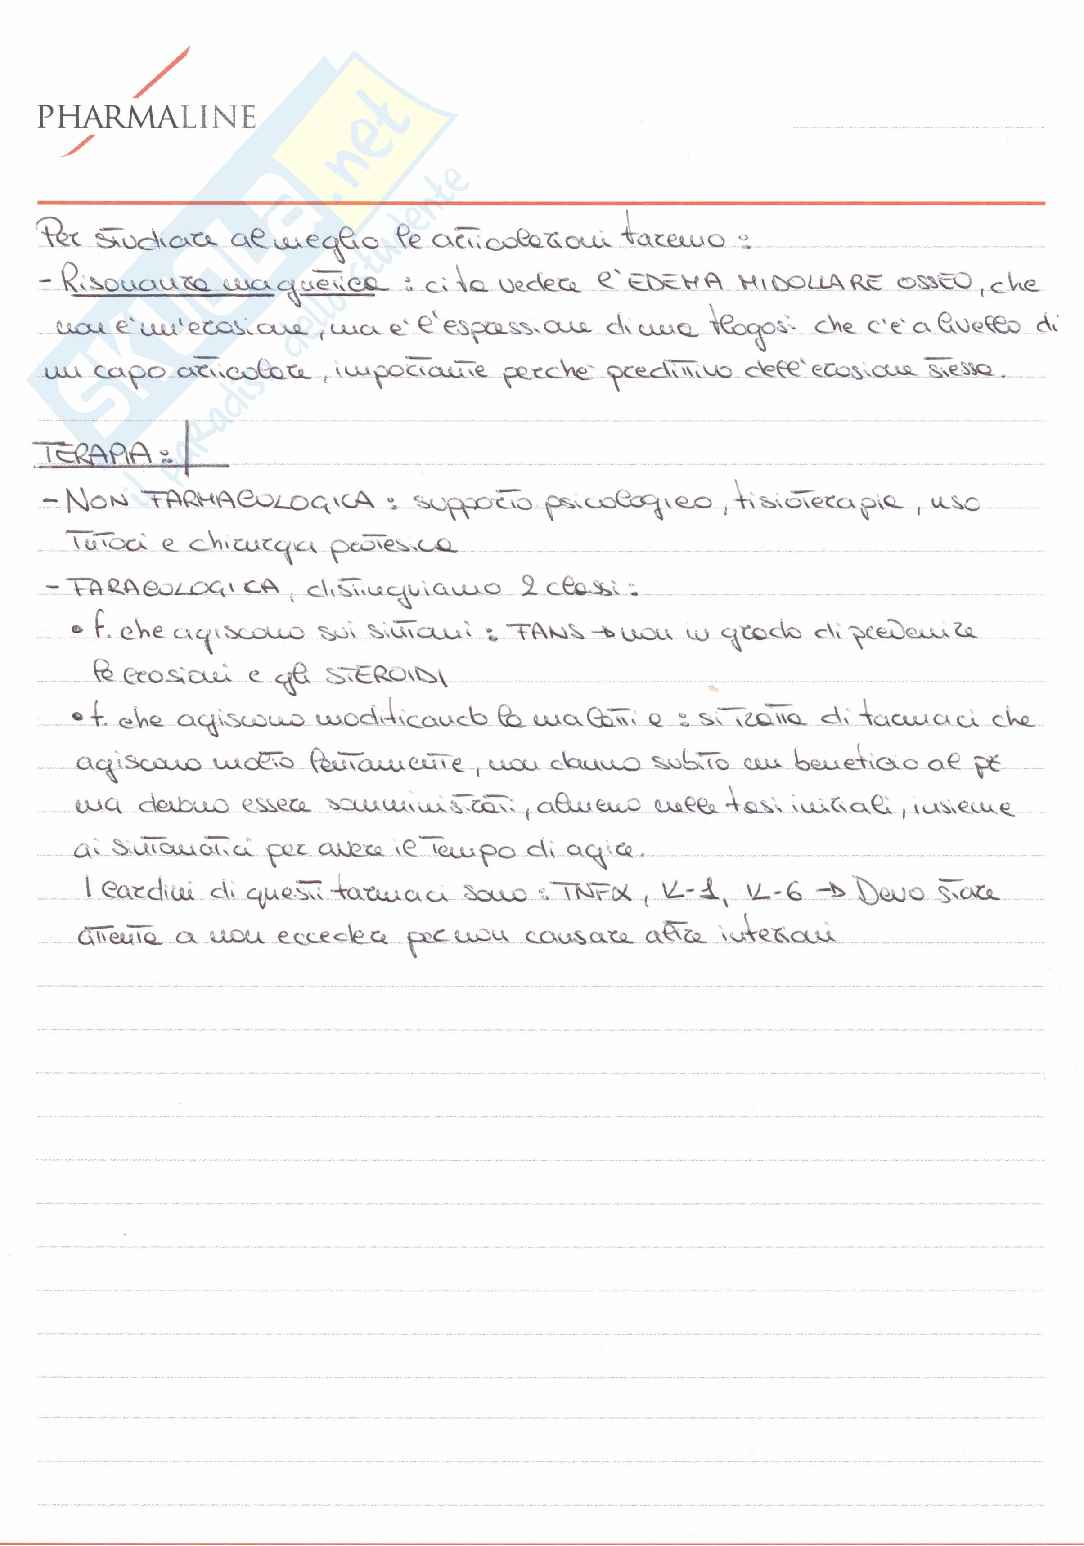 PHARMALINE
SKUOLA.net
il paradiso dello studente
Per studiare al meglio le articolazioni faremo :
- Risonanza magnetica : ci fa vedere l'EDEMA MIDOLLARE OSSEO, che
non è un'erosione, ma è l'espressione di una flogosi che c'è a livello di
un capo articolare, importante perchè predittivo dell'erosione stessa.
TERAPIA :
- NON FARMACOLOGICA : supporto psicologico, fisioterapia, uso
tutori e chirurgia protesica
- FARACOLOGICA, distinguiamo 2 classi :
• f. che agiscono sui sintomi : FANS → non in grado di prevenire
le erosioni e gli STEROIDI
• f. che agiscono modificando la malattia : si tratta di farmaci che
agiscono molto lentamente, non danno subito un beneficio al pt
ma devono essere somministrati, almeno nelle fasi iniziali, insieme
ai sintomatici per avere il tempo di agire.
I cardini di questi farmaci sono : TNFα, IL-1, IL-6 → Devo stare
attenta a non eccedere per non causare altre infezioni